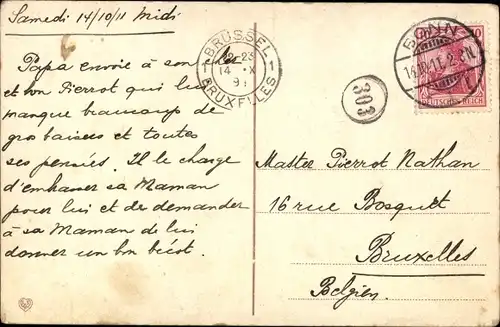 Samedi 14/10/11 Midi
Papa envoie à son cher
et bon Pierrot qui lui
manque beaucoup de
gros baisers et toutes
ses pensées. Il le charge
d'embrasser sa Maman
pour lui et de demander
à sa Maman de lui
donner un bon bécot.
BRUSSEL
14 X
BRUXELLES
303
BONN
DEUTSCHES REICH
Master Pierrot Nathan
16 rue Bosquet
Bruxelles
Belgien